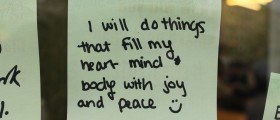 I will do things
that fill my
heart mind &
body with joy
and peace
rk